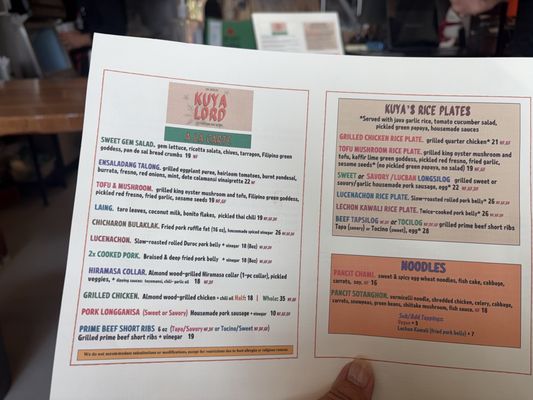 KUYA
LORD
A LA CARTE
SWEET GEM SALAD. gem lettuce, ricotta salata, chives, tarragon, Filipino green
goddess, pan de sal bread crumbs 19 NF
ENSALADANG TALONG. grilled eggplant puree, heirloom tomatoes, burnt pandesal,
burrata, fresno, red onions, mint, date calamansi vinaigrette 22 NF
TOFU & MUSHROOM. grilled king oyster mushroom and tofu, Filipino green goddess,
pickled red fresno, fried garlic, sesame seeds 19 NF,DF
LAING. taro leaves, coconut milk, bonito flakes, pickled thai chili 19 NF,DF
CHICHARON BULAKLAK. Fried pork ruffle fat (16 oz), housemade spiced vinegar 26 NF,DF
LUCENACHON. Slow-roasted rolled Duroc pork belly + vinegar 18 (8oz) NF,DF
2x COOKED PORK. Braised & deep fried pork belly + vinegar 18 (8oz) NF,DF
HIRAMASA COLLAR. Almond wood-grilled Hiramasa collar (1-pc collar), pickled
veggies, + dipping sauces: toyomansi, chili-garlic oil 18 NF,DF
GRILLED CHICKEN. Almond wood-grilled chicken + chili oil Half: 18 | Whole: 35 NF,DF
PORK LONGGANISA (Sweet or Savory) Housemade pork sausage + vinegar 10 NF,DF
PRIME BEEF SHORT RIBS 6 oz (Tapa/Savory NF,DF or Tocino/Sweet NF,DF)
Grilled prime beef short ribs + vinegar 19
We do not accommodate substitutions or modifications, except for restrictions due to food allergies or religious reasons
KUYA'S RICE PLATES
*Served with java garlic rice, tomato cucumber salad,
pickled green papaya, housemade sauces
GRILLED CHICKEN RICE PLATE. grilled quarter chicken* 21 NF,DF
TOFU MUSHROOM RICE PLATE. grilled king oyster mushroom and
tofu, kaffir lime green goddess, pickled red fresno, fried garlic,
sesame seeds* (no pickled green papaya, no salad) 19 NF,DF
SWEET or SAVORY/LUCBAN LONGSILOG grilled sweet or
savory/garlic housemade pork sausage, egg* 22 NF,DF
LUCENACHON RICE PLATE. Slow-roasted rolled pork belly* 26 NF,DF
LECHON KAWALI RICE PLATE. Twice-cooked pork belly* 26 NF,DF
BEEF TAPSILOG NF,DF or TOCILOG NF,DF grilled prime beef short ribs
Tapa (savory) or Tocino (sweet), egg* 28
NOODLES
PANCIT CHAMI. sweet & spicy egg wheat noodles, fish cake, cabbage,
carrots, soy. NF 16
PANCIT SOTANGHON. vermicelli noodle, shredded chicken, celery, cabbage,
carrots, snowpeas, green beans, shiitake mushroom, fish sauce. NF 18
Sub/Add Toppings:
Lechon Kawali (fried pork belly) + 7